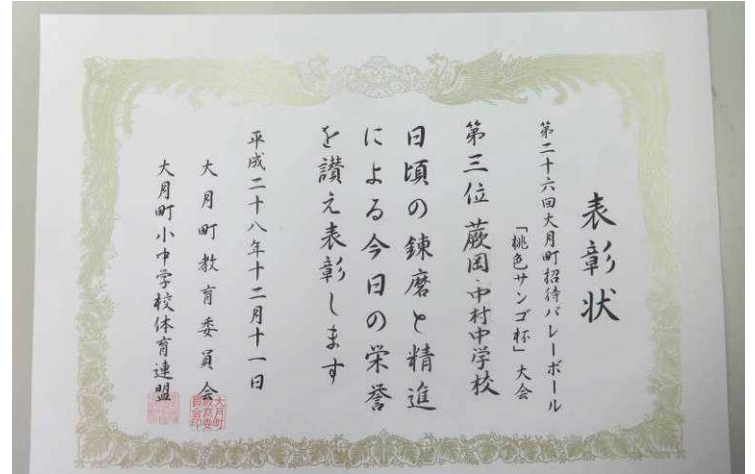 表彰状
第二十六回大月町招待バレーボール
「桃色サンゴ杯」大会
第三位 蕨岡・中村中学校
日頃の錬磨と精進
による今日の栄誉
を讃え表彰します
平成二十八年十二月十一日
大月町教育委員会
大月町小中学校体育連盟
大月町
教育委
員会印